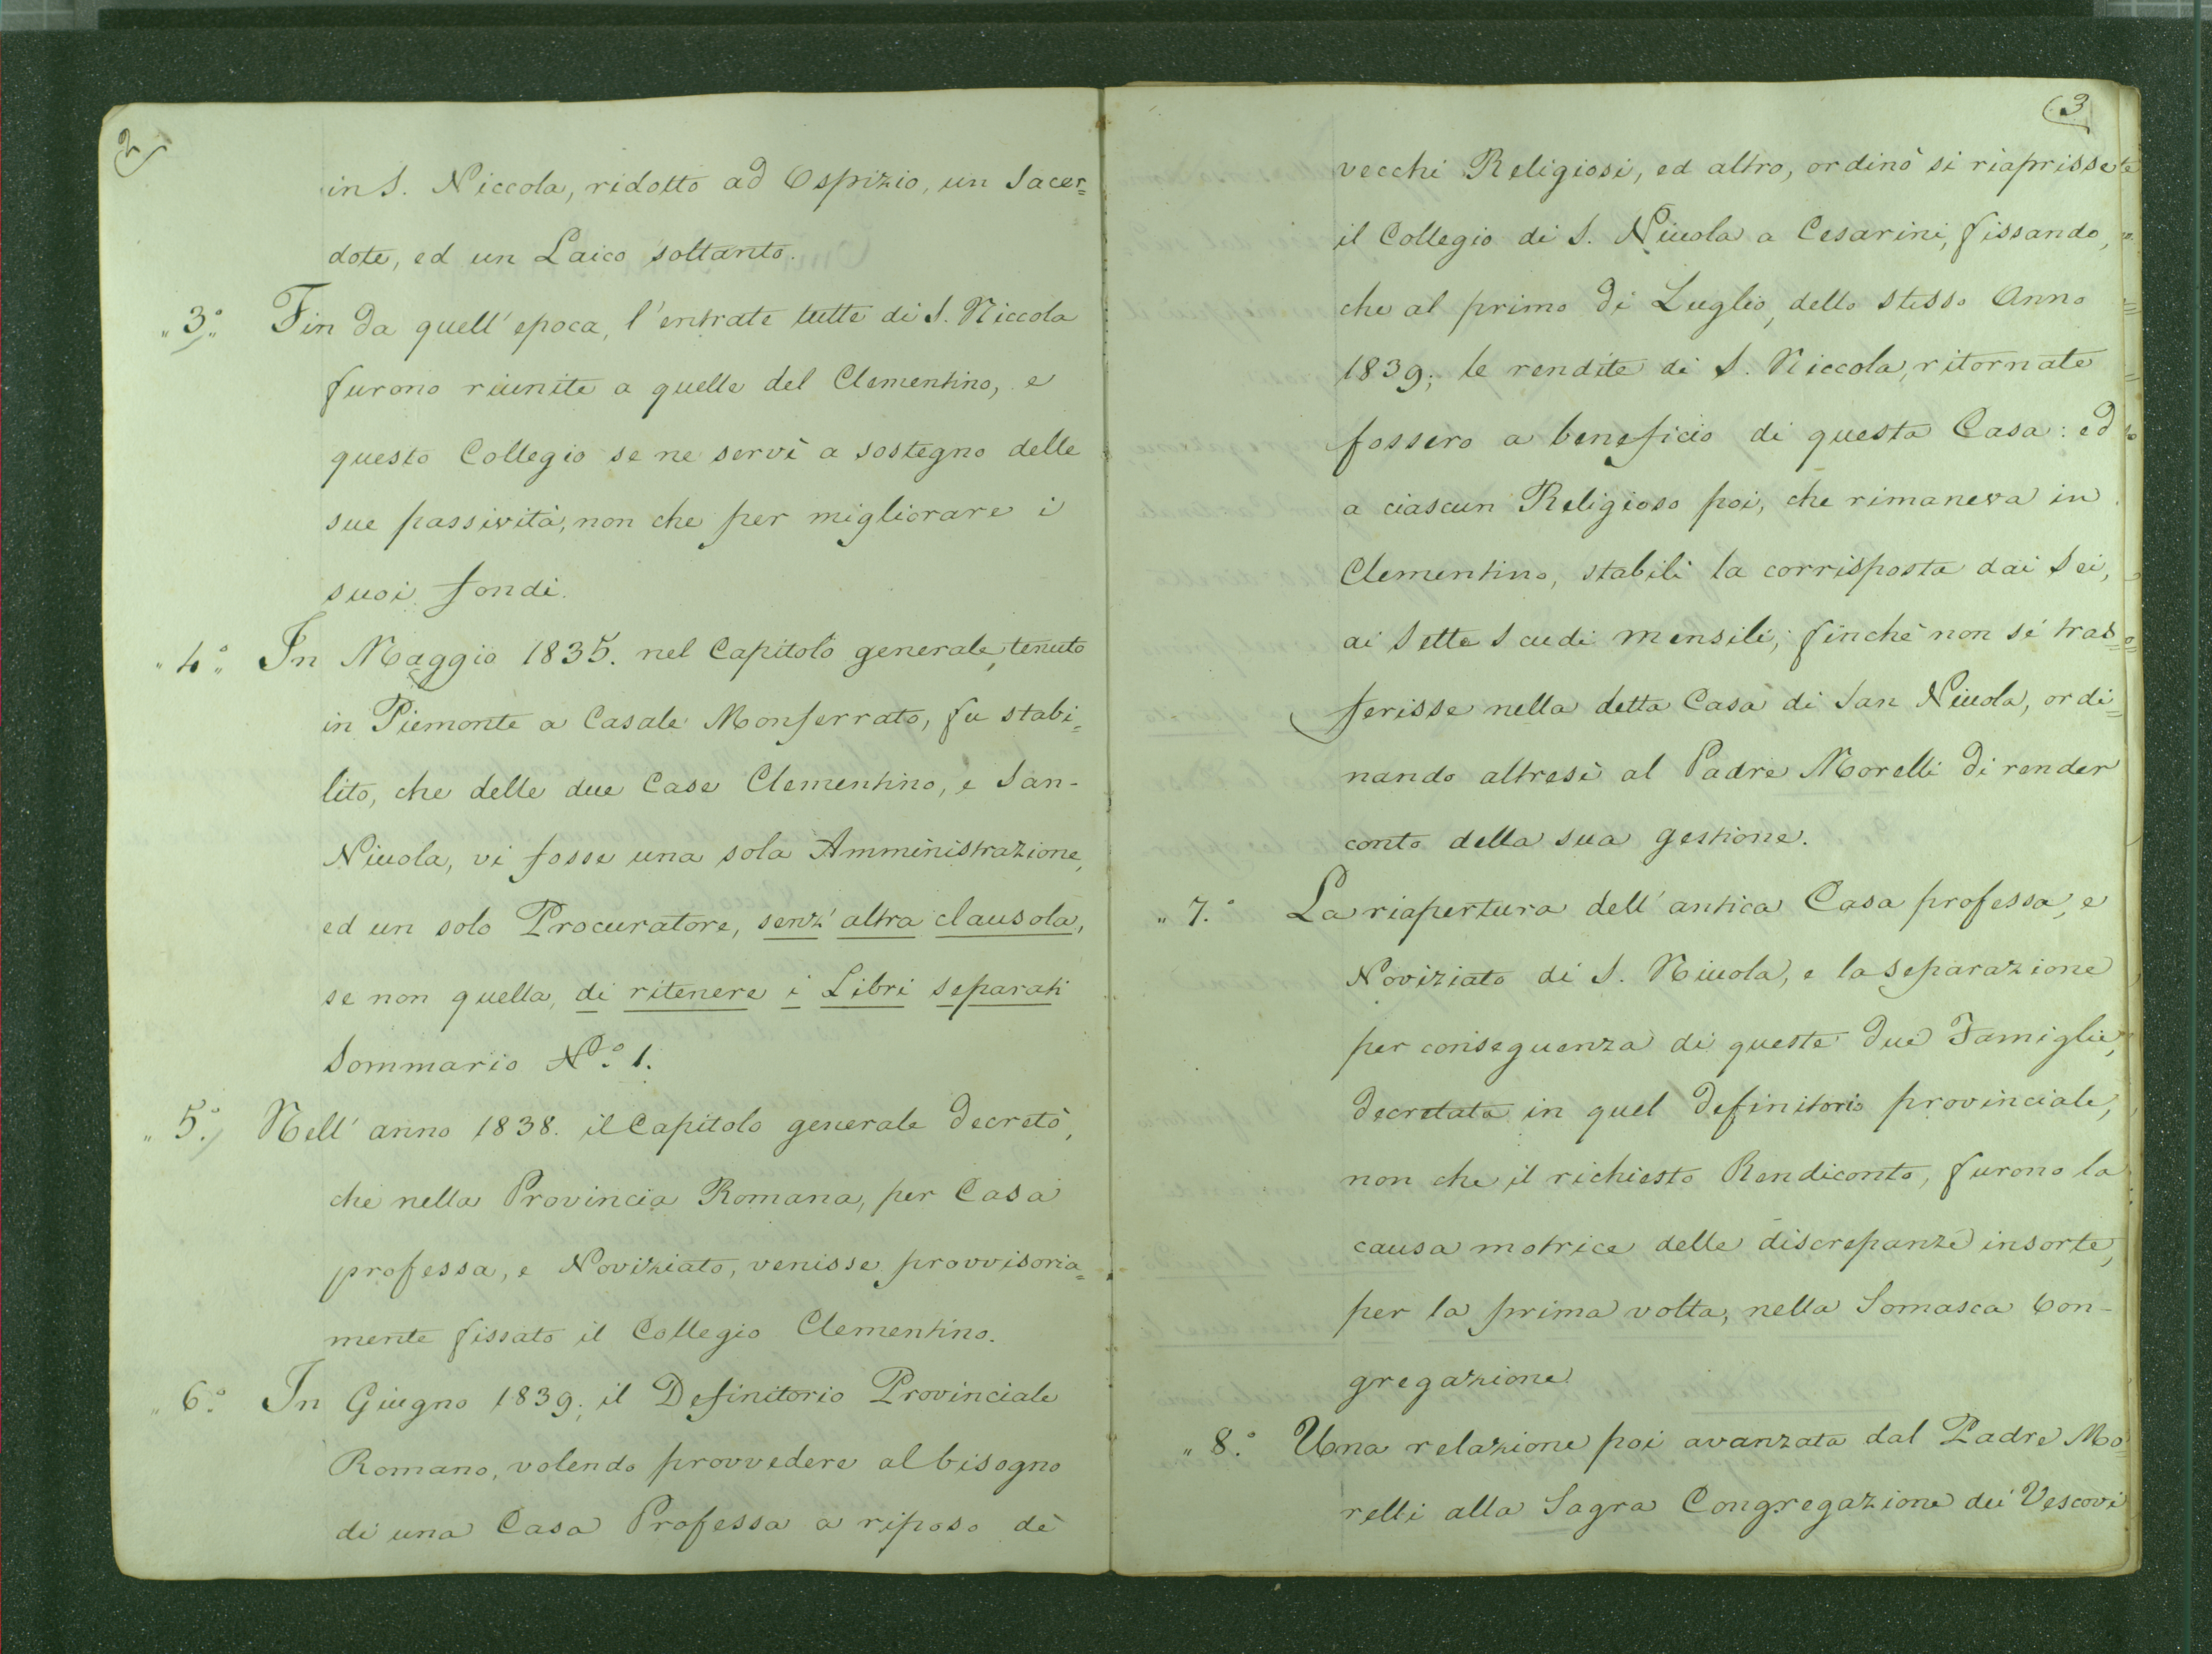 2
in S. Niccola, ridotto ad Ospizio, un Sacer=
dote, ed un Laico soltanto.
„3.° Fin da quell' epoca, l'entrate tutte di S. Niccola
furono riunite a quelle del Clementino, e
questo Collegio se ne servì a sostegno delle
sue passività, non che per migliorare i
suoi fondi.
„4.° In Maggio 1835. nel Capitolo generale, tenuto
in Piemonte a Casale Monferrato, fu stabi=
lito, che delle due Case Clementino, e San-
Niccola, vi fosse una sola Amministrazione,
ed un solo Procuratore, senz' altra clausola,
se non quella, di ritenere i Libri separati
Sommario N.° 1.
„5.° Nell' anno 1838. il Capitolo generale decretò,
che nella Provincia Romana, per Casa
professa, e Noviziato, venisse provvisoria=
mente fissato il Collegio Clementino.
„6.° In Giugno 1839; il Definitorio Provinciale
Romano, volendo provvedere al bisogno
di una Casa Professa a riposo dè
3
vecchi Religiosi, ed altro, ordinò si riaprisse
il Collegio di S. Niccola a Cesarini, fissando,
che al primo di Luglio, dello stesso Anno
1839; le rendite di S. Niccola, ritornate
fossero a beneficio di questa Casa: ed
a ciascun Religioso poi, che rimaneva in
Clementino, stabilì la corrisposta dai Sei,
ai Sette Scudi mensili; finchè non si tras=
ferisse nella detta Casa di San Niccola, ordi=
nando altresì al Padre Morelli di render
conto della sua gestione.
„7.° La riapertura dell' antica Casa professa, e
Noviziato di S. Niccola, e la separazione
per conseguenza di queste due Famiglie,
decretata in quel Definitorio provinciale,
non che il richiesto Rendiconto, furono la
causa motrice delle discrepanze insorte,
per la prima volta, nella Somasca Con-
gregazione
„8.° Una relazione poi avanzata dal Padre Mo
relli alla Sagra Congregazione dei Vescovi